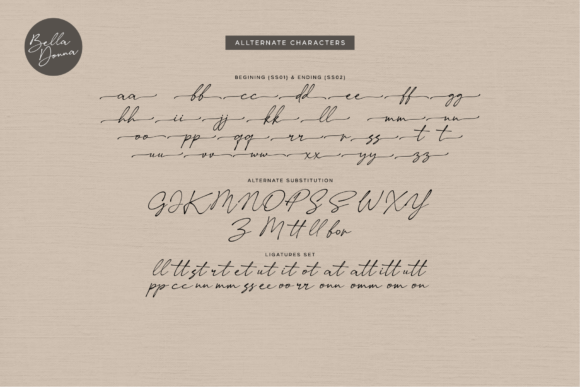 Bella
Donna
ALLTERNATE CHARACTERS
BEGINING (SS01) & ENDING (SS02)
aa bb cc dd ee ff gg
hh ii jj kk ll mm nn
oo pp qq rr r ss t t
uu vv w xx yy zz
ALTERNATE SUBSTITUTION
G J K M N O P S S W X Y
Z M tt ll for
LIGATURES SET
ll tt st rt et ut it ot at att itt utt
pp cc nn mm ss ee oo rr onn omm om on